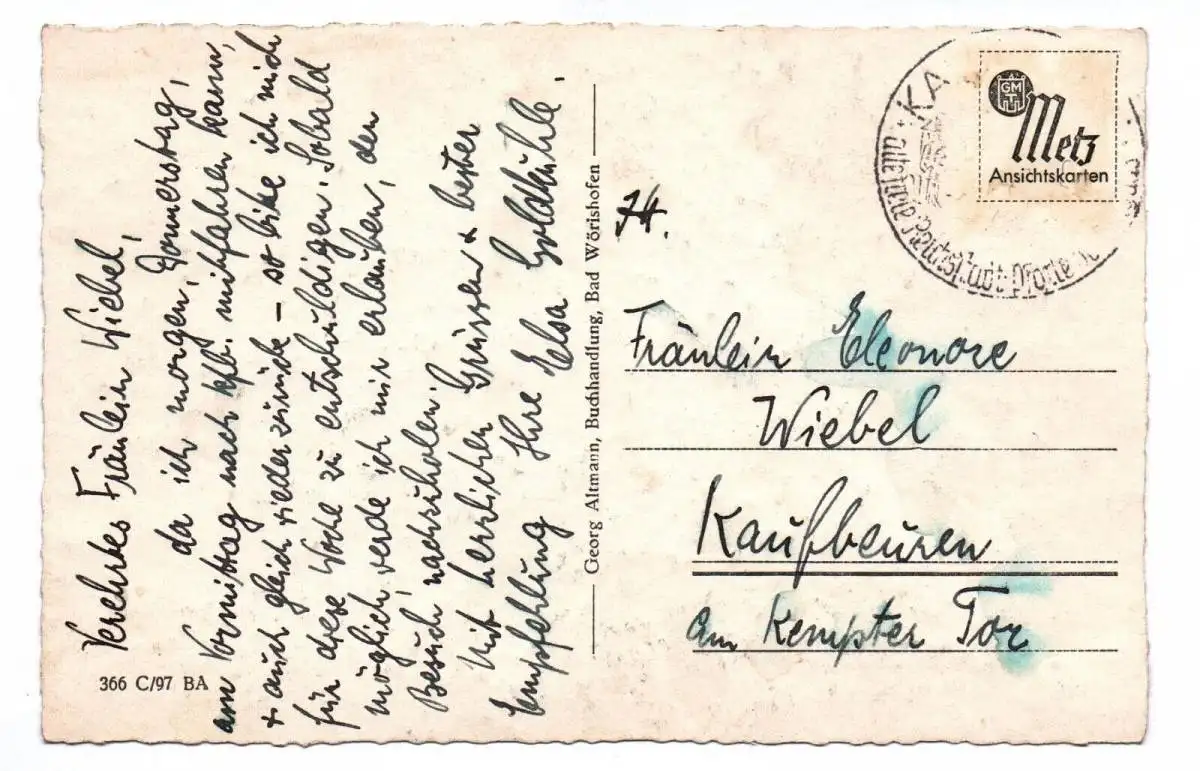 Verehrtes Fräulein Wiebel,
da ich morgen, Donnerstag,
am Vormittag nach Kfb. mitfahren kann,
+ auch gleich wieder zurück – so bitte ich mich
für diese Woche zu entschuldigen. Sobald
möglich, werde ich mir erlauben, den
Besuch nachzuholen.
Mit herzlichen Grüssen + bester
Empfehlung Ihre Elsa Goldkuhle.
366 C/97 BA
Georg Altmann, Buchhandlung, Bad Wörishofen
KA
alte freie Reichsstadt
GMT
Metz
Ansichtskarten
74.
Fräulein Eleonore
Wiebel
Kaufbeuren
am Kempter Tor